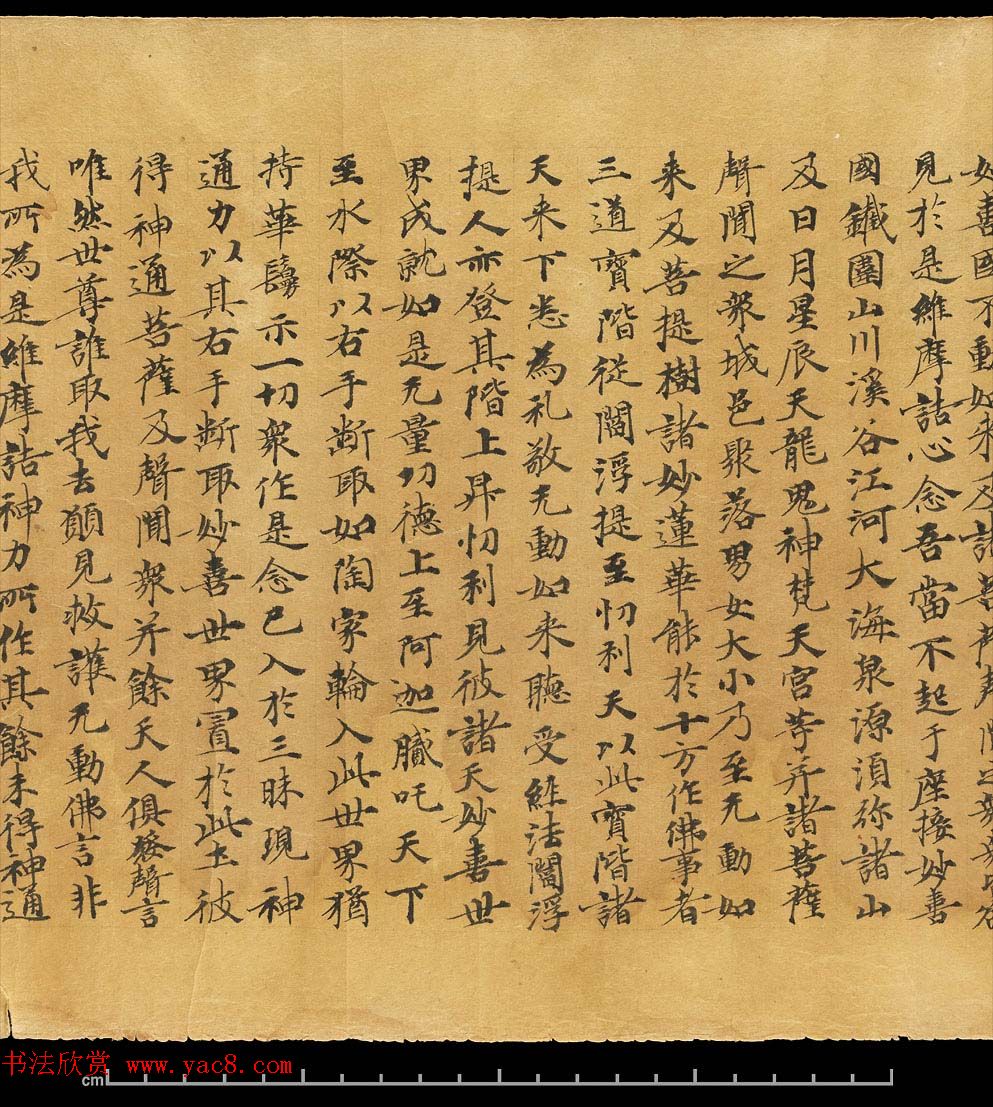 妙喜國不動如來及諸菩薩聲聞之衆
見於是維摩詰心念吾當不起于座接妙善
國鐵圍山川溪谷江河大海泉源須弥諸山
及日月星辰天龍鬼神梵天宮等并諸菩薩
聲聞之衆城邑聚落男女大小乃至无動如
来及菩提樹諸妙蓮華能於十方作佛事者
三道寳階從閻浮提至忉利天以此寳階諸
天来下悉為礼敬无動如来聴受經法閻浮
提人亦登其階上昇忉利見彼諸天妙善世
界成就如是无量功德上至阿迦膩吒天下
至水際以右手断取如陶家輪入此世界猶
持華鬘示一切衆作是念已入於三昧現神
通力以其右手断取妙喜世界置於此土彼
得神通菩薩及聲聞衆并餘天人俱發聲言
唯然世尊誰取我去願見救護无動佛言非
我所為是維摩詰神力所作其餘未得神通
书法欣赏 www.yac8.com
cm